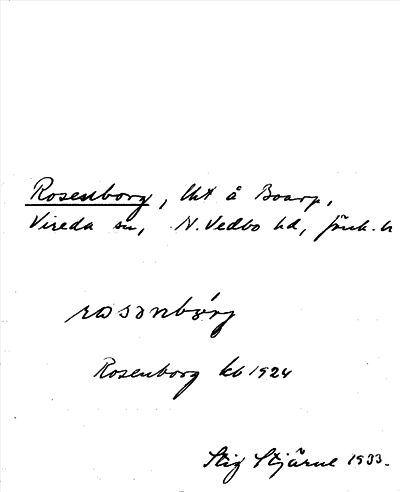 Rosenborg, lht å Boarp,
Vireda sn, N. Vedbo hd, Jönk. l.
rosənbórj
Rosenborg kb 1924
Stig Stjärne 1933.